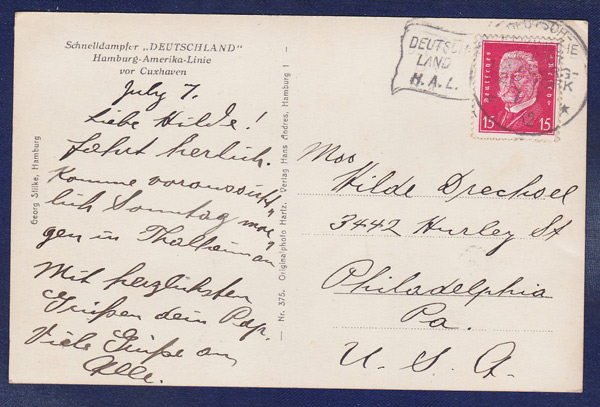 Schnelldampfer „DEUTSCHLAND"
Hamburg-Amerika-Linie
vor Cuxhaven
July 7.
Liebe Hilde!
Fahrt herlich.
Komme voraussicht"
lich Sonntag mor"
gen in Thalheim an
Mit herzlichsten
Grüßen dein Pap.
Viele Grüße an
Alle.
Georg Stilke, Hamburg
Nr. 375. Originalphoto Hartz. Verlag Hans Andres, Hamburg 1
DEUTSCH
LAND
H.A.L.
Deutsches Reich
15 15
Miss
Hilde Drechsel
3442 Hurley St
Philadelphia
Pa.
U. S. A.